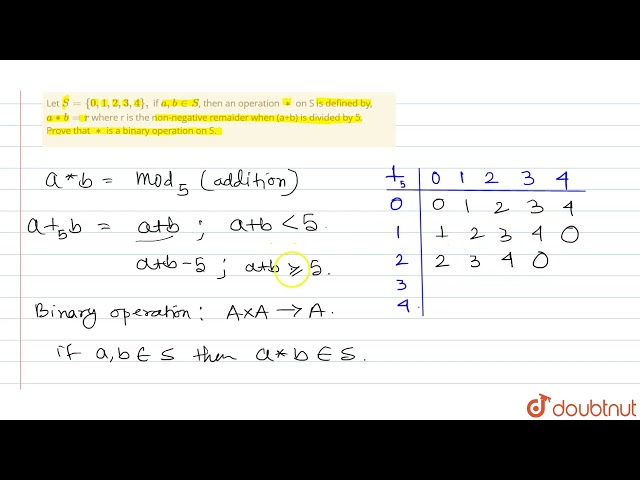 Let S = {0, 1, 2, 3, 4}, if a, b ∈ S, then an operation * on S is defined by,
a * b = r where r is the non-negative remaider when (a+b) is divided by 5.
Prove that * is a binary operation on S.
a*b = Mod₅ (addition)
a+₅b = a+b ; a+b < 5.
a+b-5 ; a+b ≥ 5.
Binary operation: A×A → A.
if a, b ∈ S then a*b ∈ S.
+₅ 0 1 2 3 4
0 0 1 2 3 4
1 1 2 3 4 0
2 2 3 4 0
3
4
doubtnut